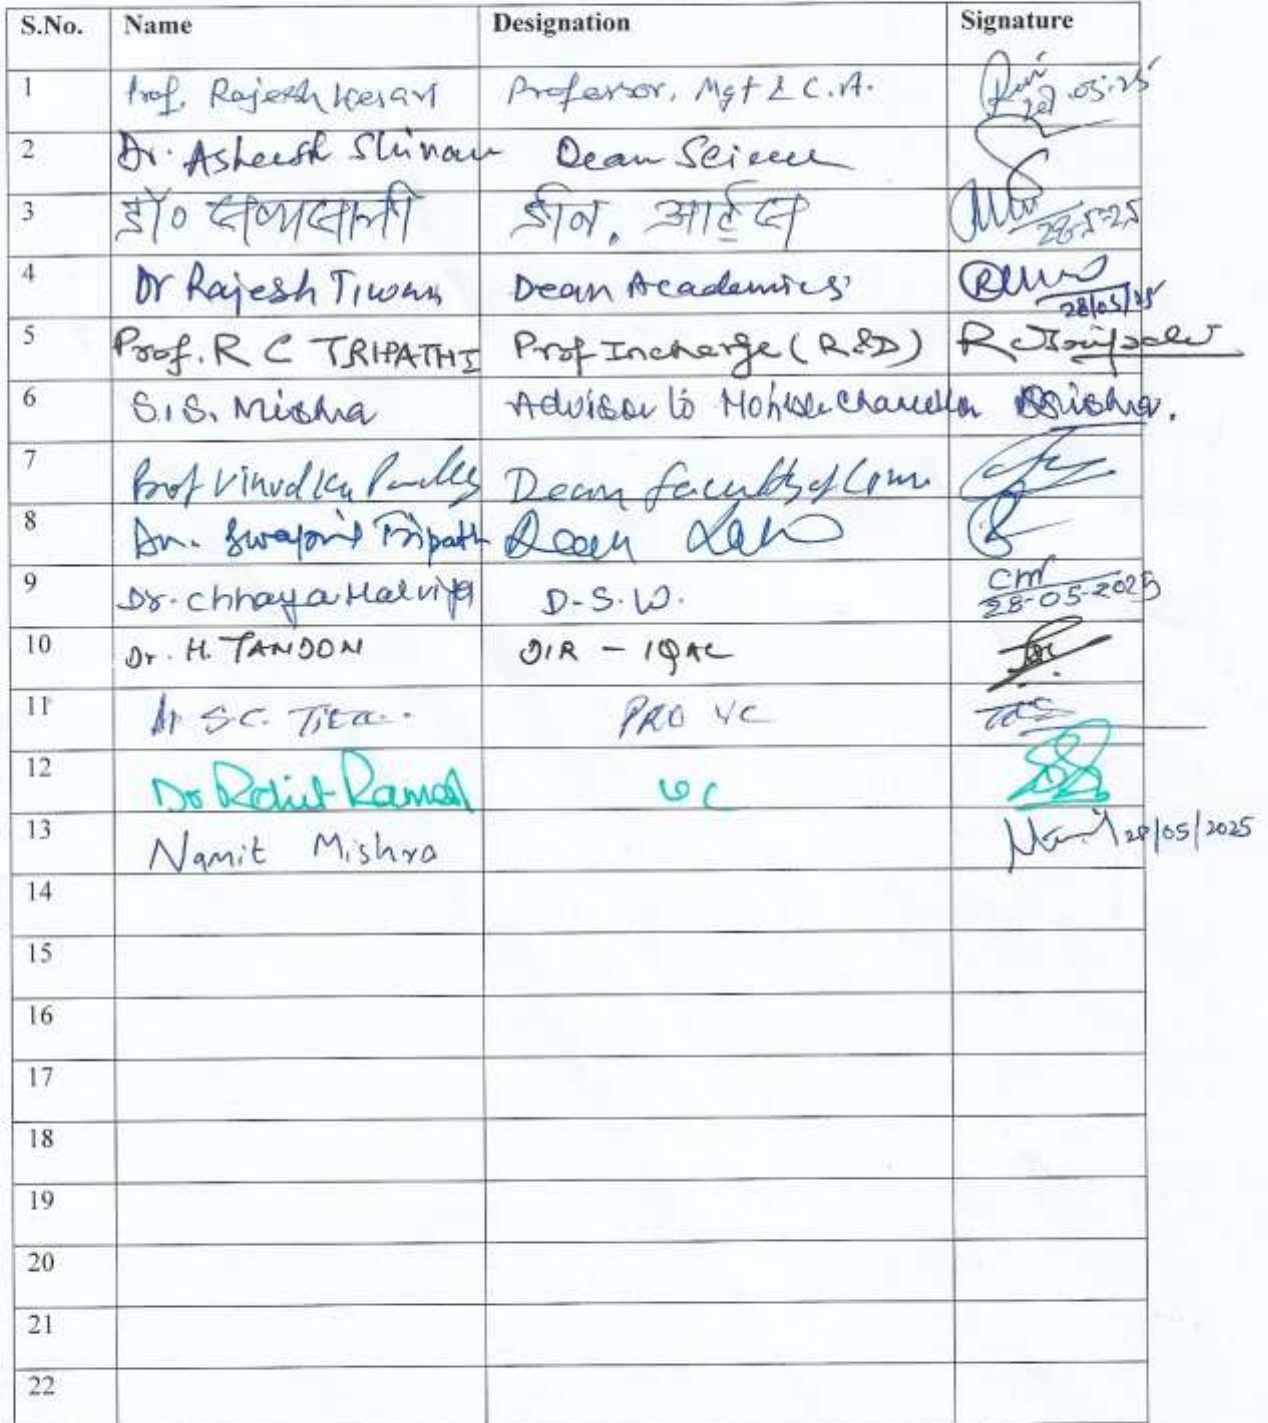 S.No. Name Designation Signature
1 Prof. Rajesh Kesari Professor, Mgt & C.A. 28.05.25
2 Dr. Asheesh Dean Science
3 डॉ० डीन, आर्ट्स 28-5-25
4 Dr Rajesh Tiwari Dean Academics 28/05/25
5 Prof. R C TRIPATHI Prof Incharge (R&D) R C Tripathi
6 S.S. Mishra Advisor to Mishra.
7 Prof Vinod Kr Pandey Dean faculty of Com.
8 Dr. Swapnil Tripathi Dean Law
9 Dr. Chhaya Malviya D.S.W. CM 28-05-2025
10 Dr. H. TANDON DIR - IQAC
11 Dr S.C. PRO VC
12 Dr Rohit Ramesh VC
13 Namit Mishra 28/05/2025
14
15
16
17
18
19
20
21
22